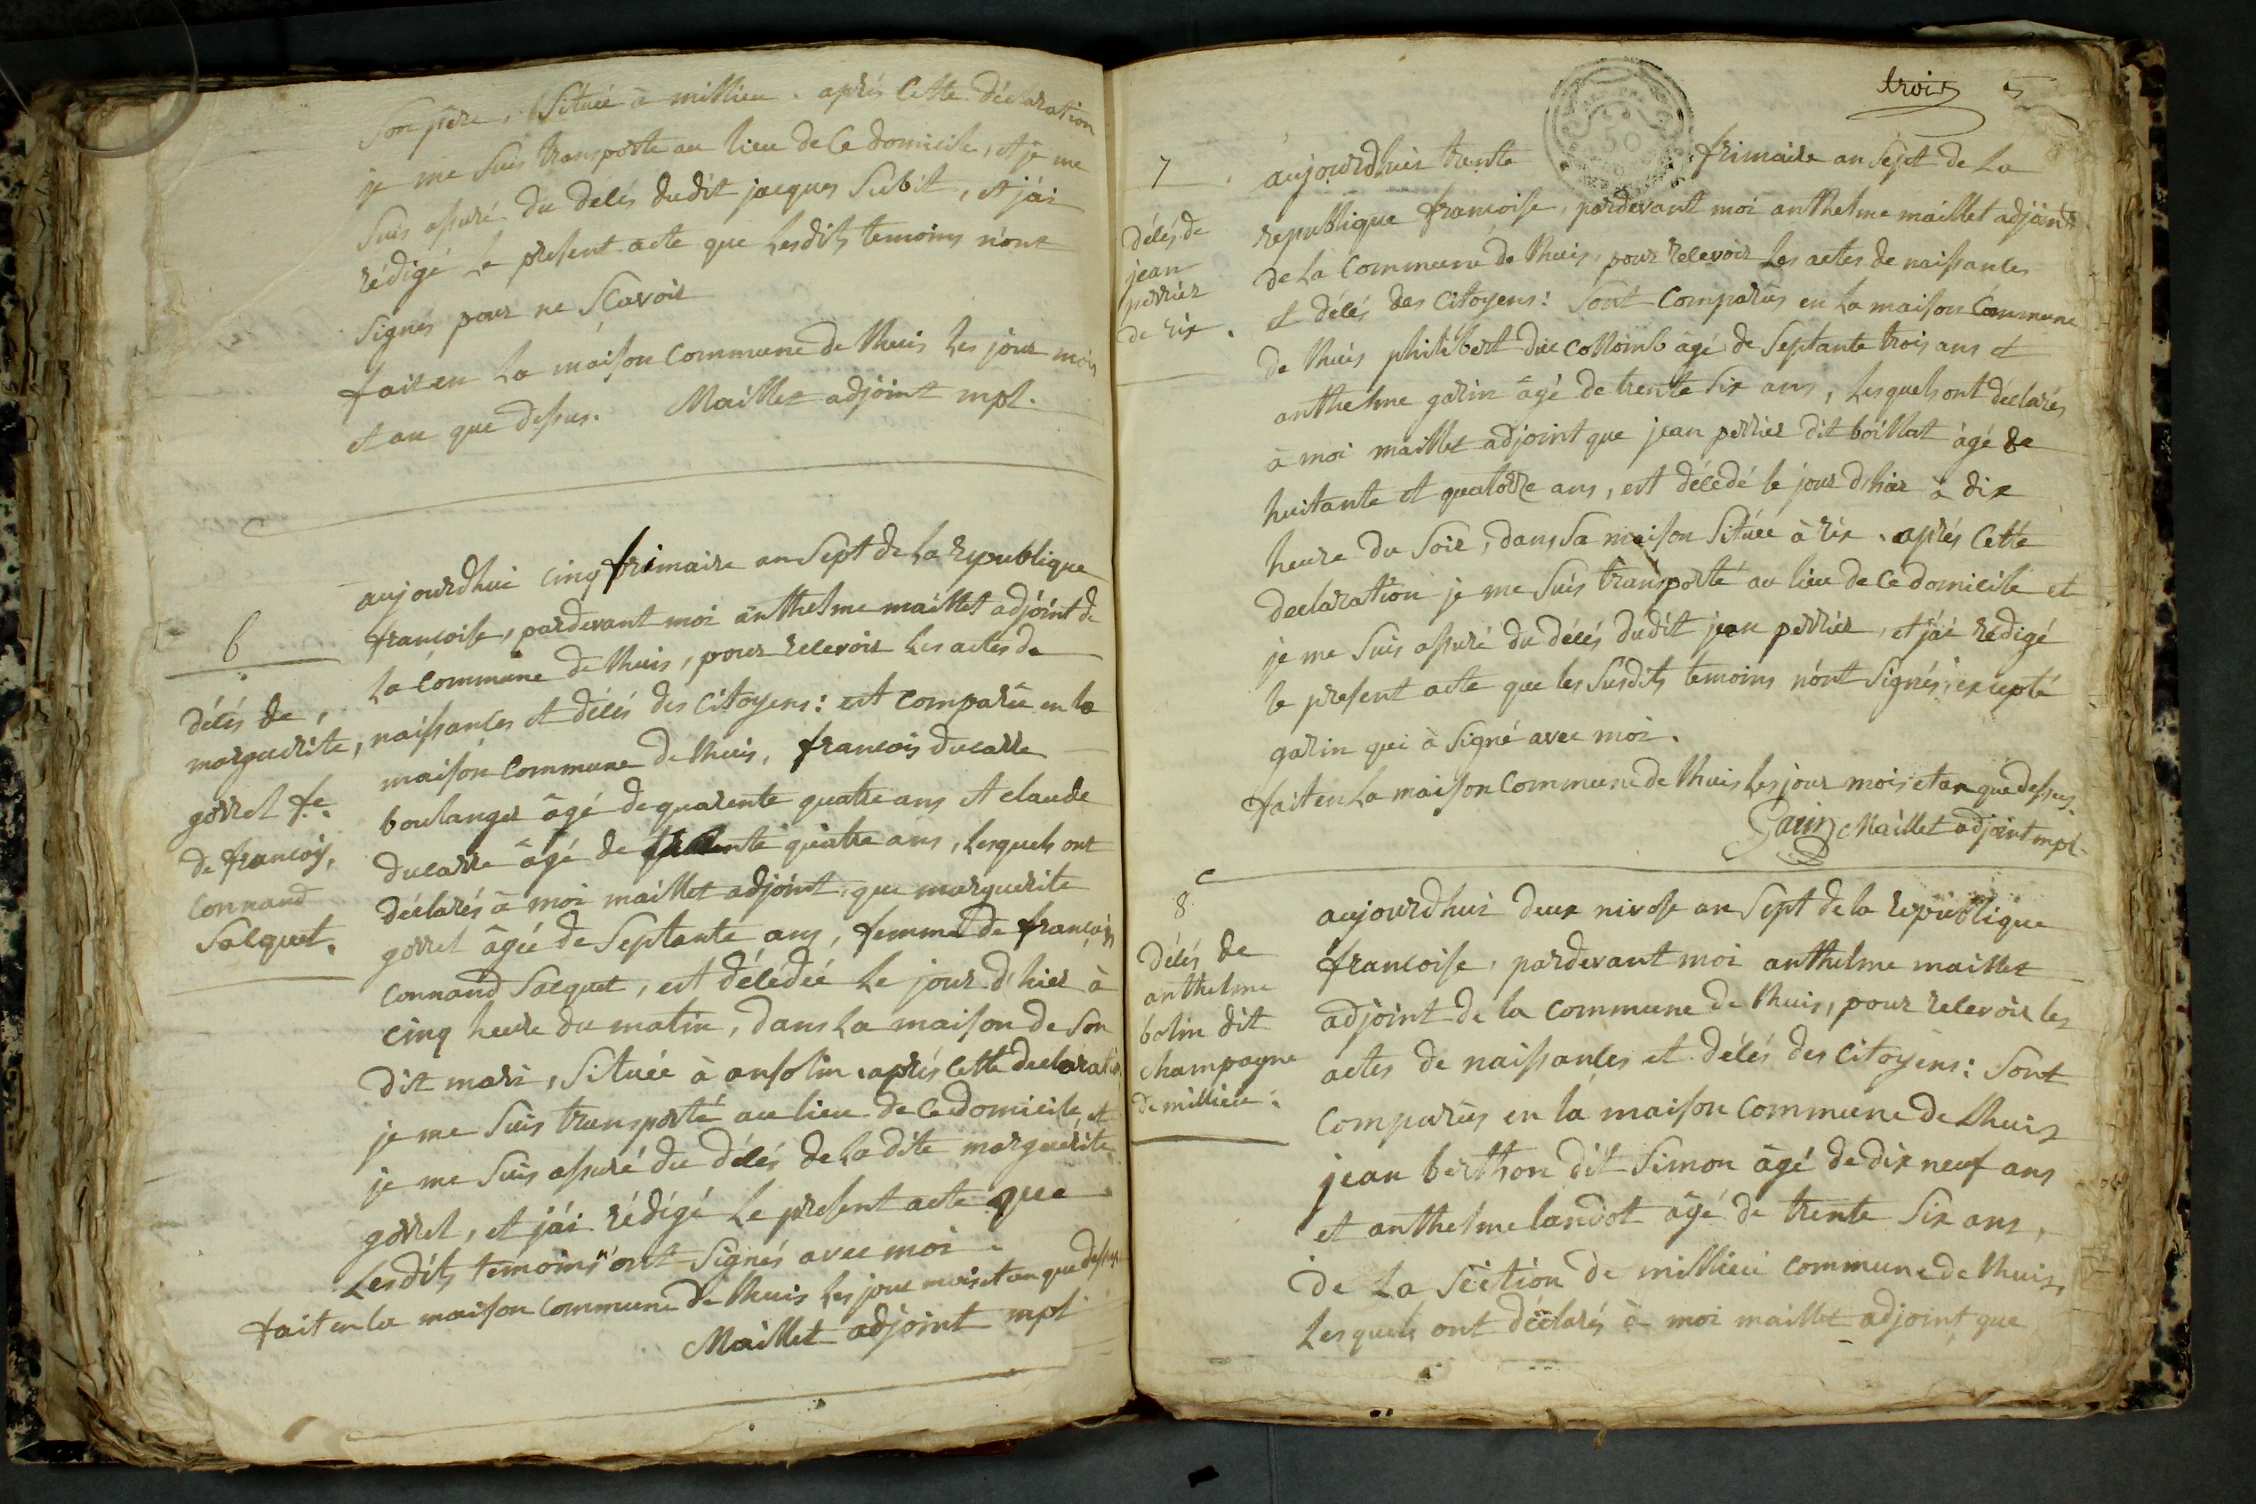 son père, située à millieu. aprés cette déclaration
je me suis transporté au lieu de ce domicile, et je me
suis assuré du décés dudit jacques subit, et j'ai
rédigé le present acte que lesdits temoins n'ont
signés pour ne sçavoir
fait en la maison commune de lhuis les jour mois
et an que dessus. Maillet adjoint mpl.
6
décés de
marguerite,
gorrel fe.
de francois,
connand
Salquet.
aujourdhui cinq frimaire an sept de la republique
francoise, pardevant moi anthelme maillet adjoint de
la commune de lhuis, pour recevoir les actes de
naissances et décés des citoyens: est comparüe en la
maison commune de lhuis, francois ducarre
boulanger âgé de quarente quatre ans et claude
ducarre âgé de quatre ans, lesquels ont
déclarés à moi maillet adjoint, que marguerite
gorrel âgée de septante ans, femme de françois
connand Salquet, est décédée le jour d'hier à
cinq heure du matin, dans la maison de son
dit mari, située à ansolin. aprés cette declaration
je me suis transporté au lieu de ce domicile, et
je me suis assuré du décés de ladite marguerite
gorrel, et j'ai rédigé le present acte que
lesdits temoins n'ont signés avec moi.
fait en la maison commune de lhuis les jour mois et an que dessus
Maillet adjoint mpl
trois 5
7
décés de
jean
perrier
de rix.
aujourdhui trente frimaire an sept de la
republique francoise, pardevant moi anthelme maillet adjoint
de la commune de lhuis, pour recevoir les actes de naissances
et décés des citoyens: sont comparus en la maison commune
de lhuis philibert duc collomb âgé de septante trois ans et
anthelme garin âgé de trente six ans, lesquels ont déclarés
à moi maillet adjoint que jean perrier dit boillat âgé de
huitante et quatorze ans, est décédé le jour dhier à dix
heure du soir, dans sa maison située à rix. aprés cette
declaration je me suis transporté au lieu de ce domicile et
je me suis assuré du décés dudit jean perrier, et j'ai rédigé
le present acte que les susdits temoins n'ont signés, excepté
garin qui à signé avec moi.
fait en la maison commune de lhuis les jour mois et an que dessus.
Garin Maillet adjoint mpl.
8
décés de
anthelme
bolin dit
champagne
de millieu.
aujourdhui deux nivose an sept de la republique
francoise, pardevant moi anthelme maillet
adjoint de la commune de lhuis, pour recevoir les
actes de naissances et décés des citoyens: sont
comparus en la maison commune de lhuis
jean berthon dit simon âgé de dix neuf ans
et anthelme landot âgé de trente six ans,
de la section de millieu commune de lhuis,
lesquels ont déclarés à moi maillet adjoint que